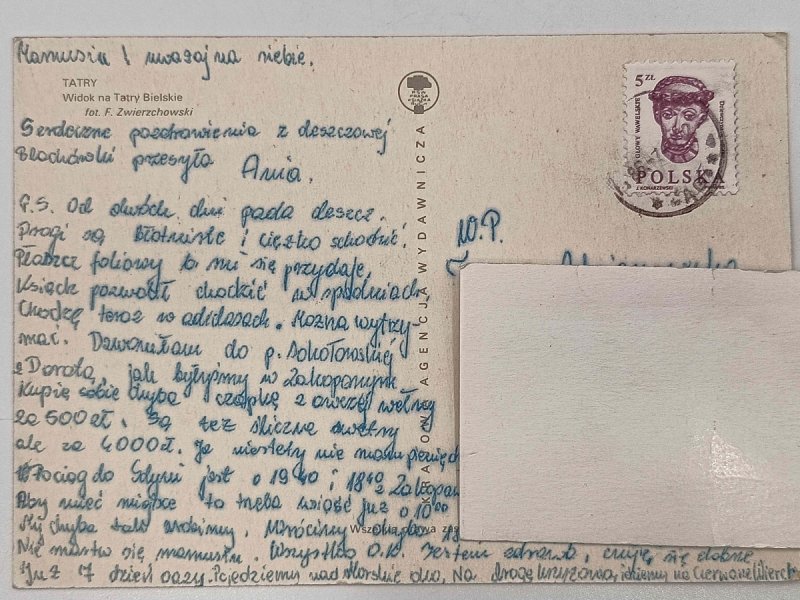 Mamusiu! uważaj na siebie.
TATRY
Widok na Tatry Bielskie
fot. F. Zwierzchowski
Serdeczne pozdrowienia z deszczowej
Blachówki przesyła Ania.
P.S. Od dwóch dni pada deszcz.
Drogi są błotniste i ciężko schodzić.
Płaszcz foliowy to mi się przydaje.
Ksiądz pozwolił chodzić w spodniach.
Chodzę teraz w adidasach. Można wytrzy-
mać. Dzwoniłam do p. Sokołowskiej
z Dorotą, jak byłyśmy w Zakopanym.
Kupię sobie chyba czapkę z owczej wełny
za 500 zł. Są też śliczne swetry
ale za 4000 zł. Ja niestety nie mam pieniędz
Pociąg do Gdyni jest o 19 40 i 18 40 z Zakopan
Aby mieć miejsce to trzeba wsiąść już o 16 00
My chyba tak zrobimy. Wrócimy
Nie martw się mamusiu. Wszystko O.K. Jestem zdrowa, czuję się dobrze
Już 7 dzień oazy. Pojedziemy nad Morskie Oko, Na drogę krzyżową idziemy na Czerwone Wierch
KRAJOWA AGENCJA WYDAWNICZA
5 ZŁ
GŁOWY WAWELSKIE
POLSKA
W.P.